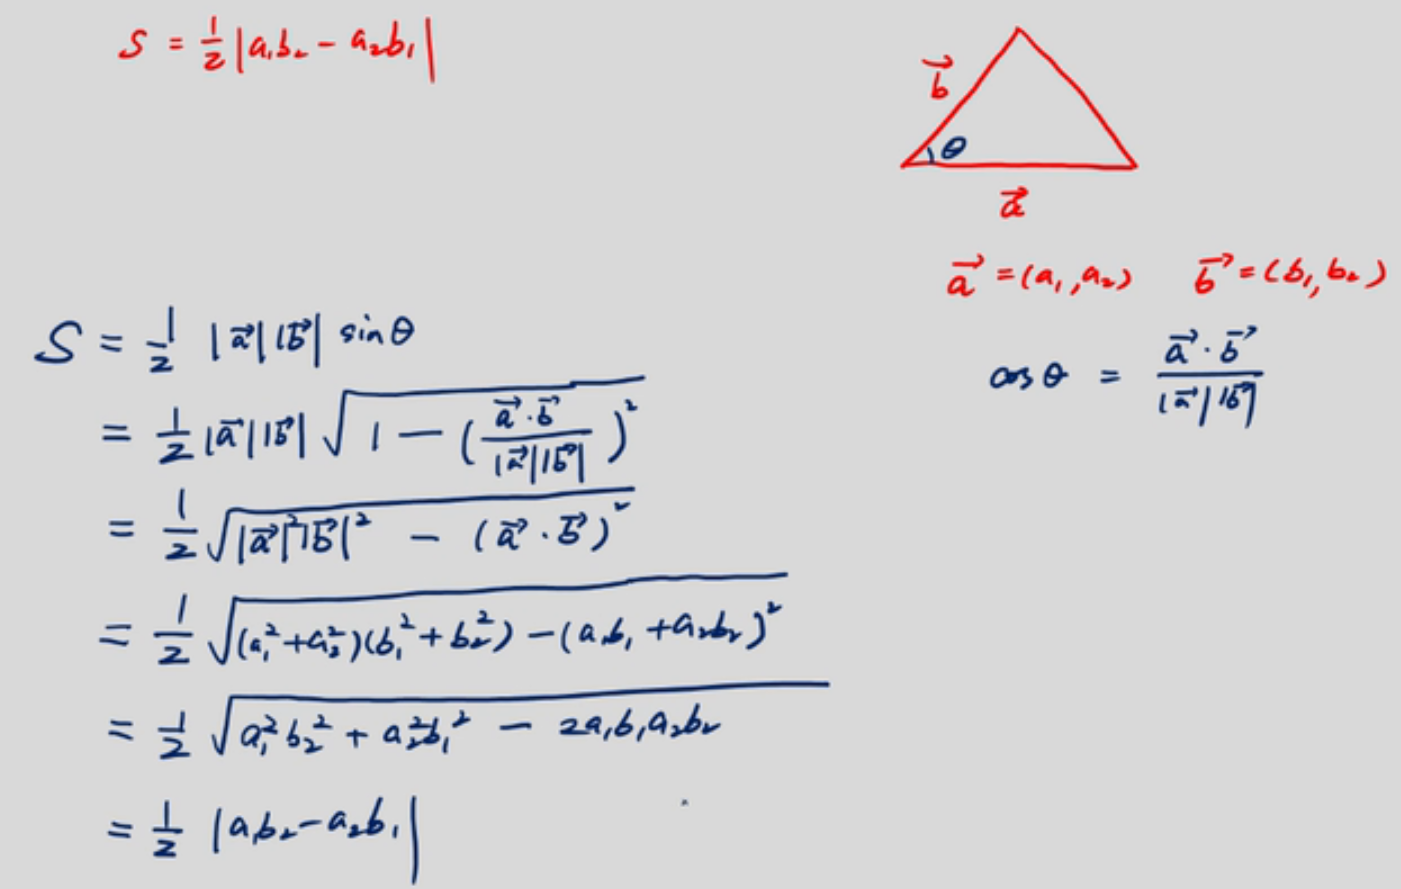 S = \frac{1}{2} |a_1 b_2 - a_2 b_1|
\vec{b}
θ
\vec{a}
\vec{a} = (a_1, a_2)  \vec{b} = (b_1, b_2)
cos θ = \frac{\vec{a} \cdot \vec{b}}{|\vec{a}| |\vec{b}|}
S = \frac{1}{2} |\vec{a}| |\vec{b}| sin θ
= \frac{1}{2} |\vec{a}| |\vec{b}| \sqrt{1 - (\frac{\vec{a} \cdot \vec{b}}{|\vec{a}| |\vec{b}|})^2}
= \frac{1}{2} \sqrt{|\vec{a}|^2 |\vec{b}|^2 - (\vec{a} \cdot \vec{b})^2}
= \frac{1}{2} \sqrt{(a_1^2 + a_2^2)(b_1^2 + b_2^2) - (a_1 b_1 + a_2 b_2)^2}
= \frac{1}{2} \sqrt{a_1^2 b_2^2 + a_2^2 b_1^2 - 2 a_1 b_1 a_2 b_2}
= \frac{1}{2} |a_1 b_2 - a_2 b_1|